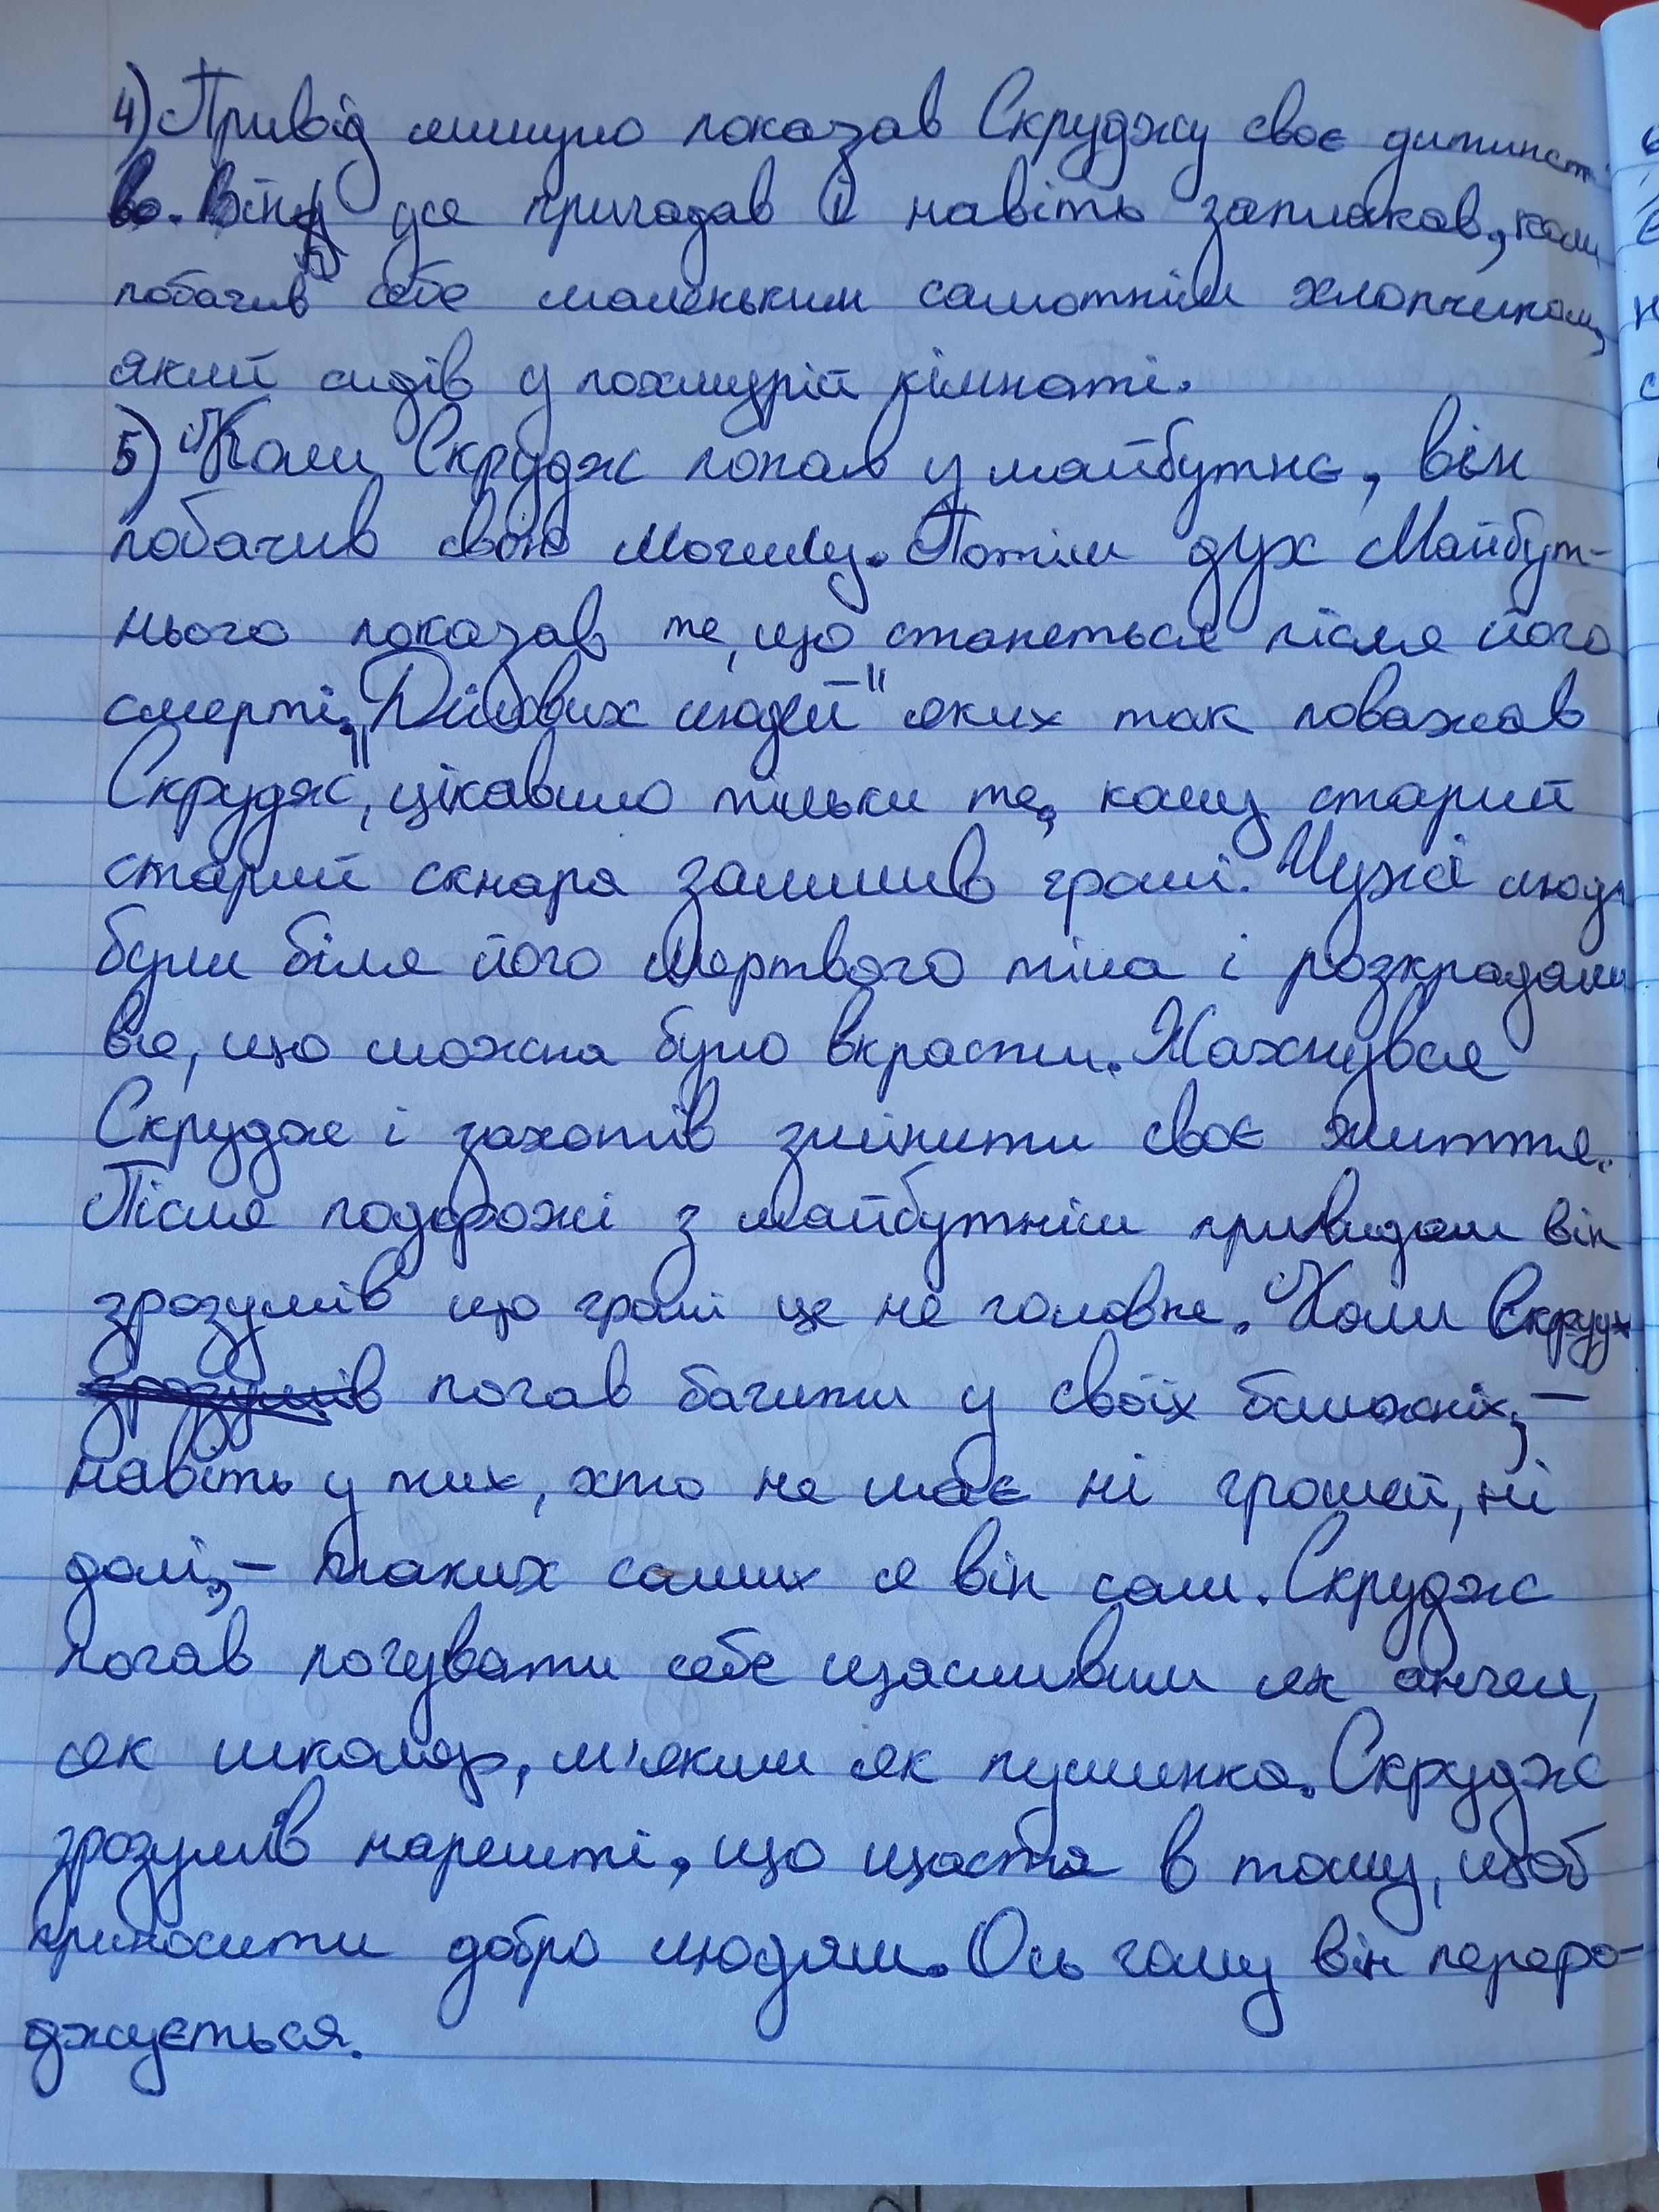 4) Привід минуло показав Скруджу своє дитинст
во. Він усе пригадав і навіть заплакав, коли
побачив себе маленьким самотнім хлопчиком,
який сидів у похмурій кімнаті.
5) Коли Скрудж попав у майбутнє, він
побачив свою могилу. Потім дух Майбут-
нього показав те, що станеться після його
смерті. "Ділових людей" яких так поважав
Скрудж, цікавило тільки те, кому старий
старий скнара залишив гроші. Чужі люди
були біля його мертвого тіла і розкрадали
все, що можна було вкрасти. Жахнувся
Скрудж і захотів змінити своє життя.
Після подорожі з майбутнім привидом він
зрозумів що гроші це не головне. Коли Скрудж
почав бачити у своїх ближніх, –
навіть у тих, хто не має ні грошей, ні
долі, – таких самих я він сам. Скрудж
почав почувати себе щасливим як ангел,
як школяр, м'яким як пушинка. Скрудж
зрозумів нарешті, що щастя в тому, щоб
приносити добро людям. Ось чому він переро-
джується.